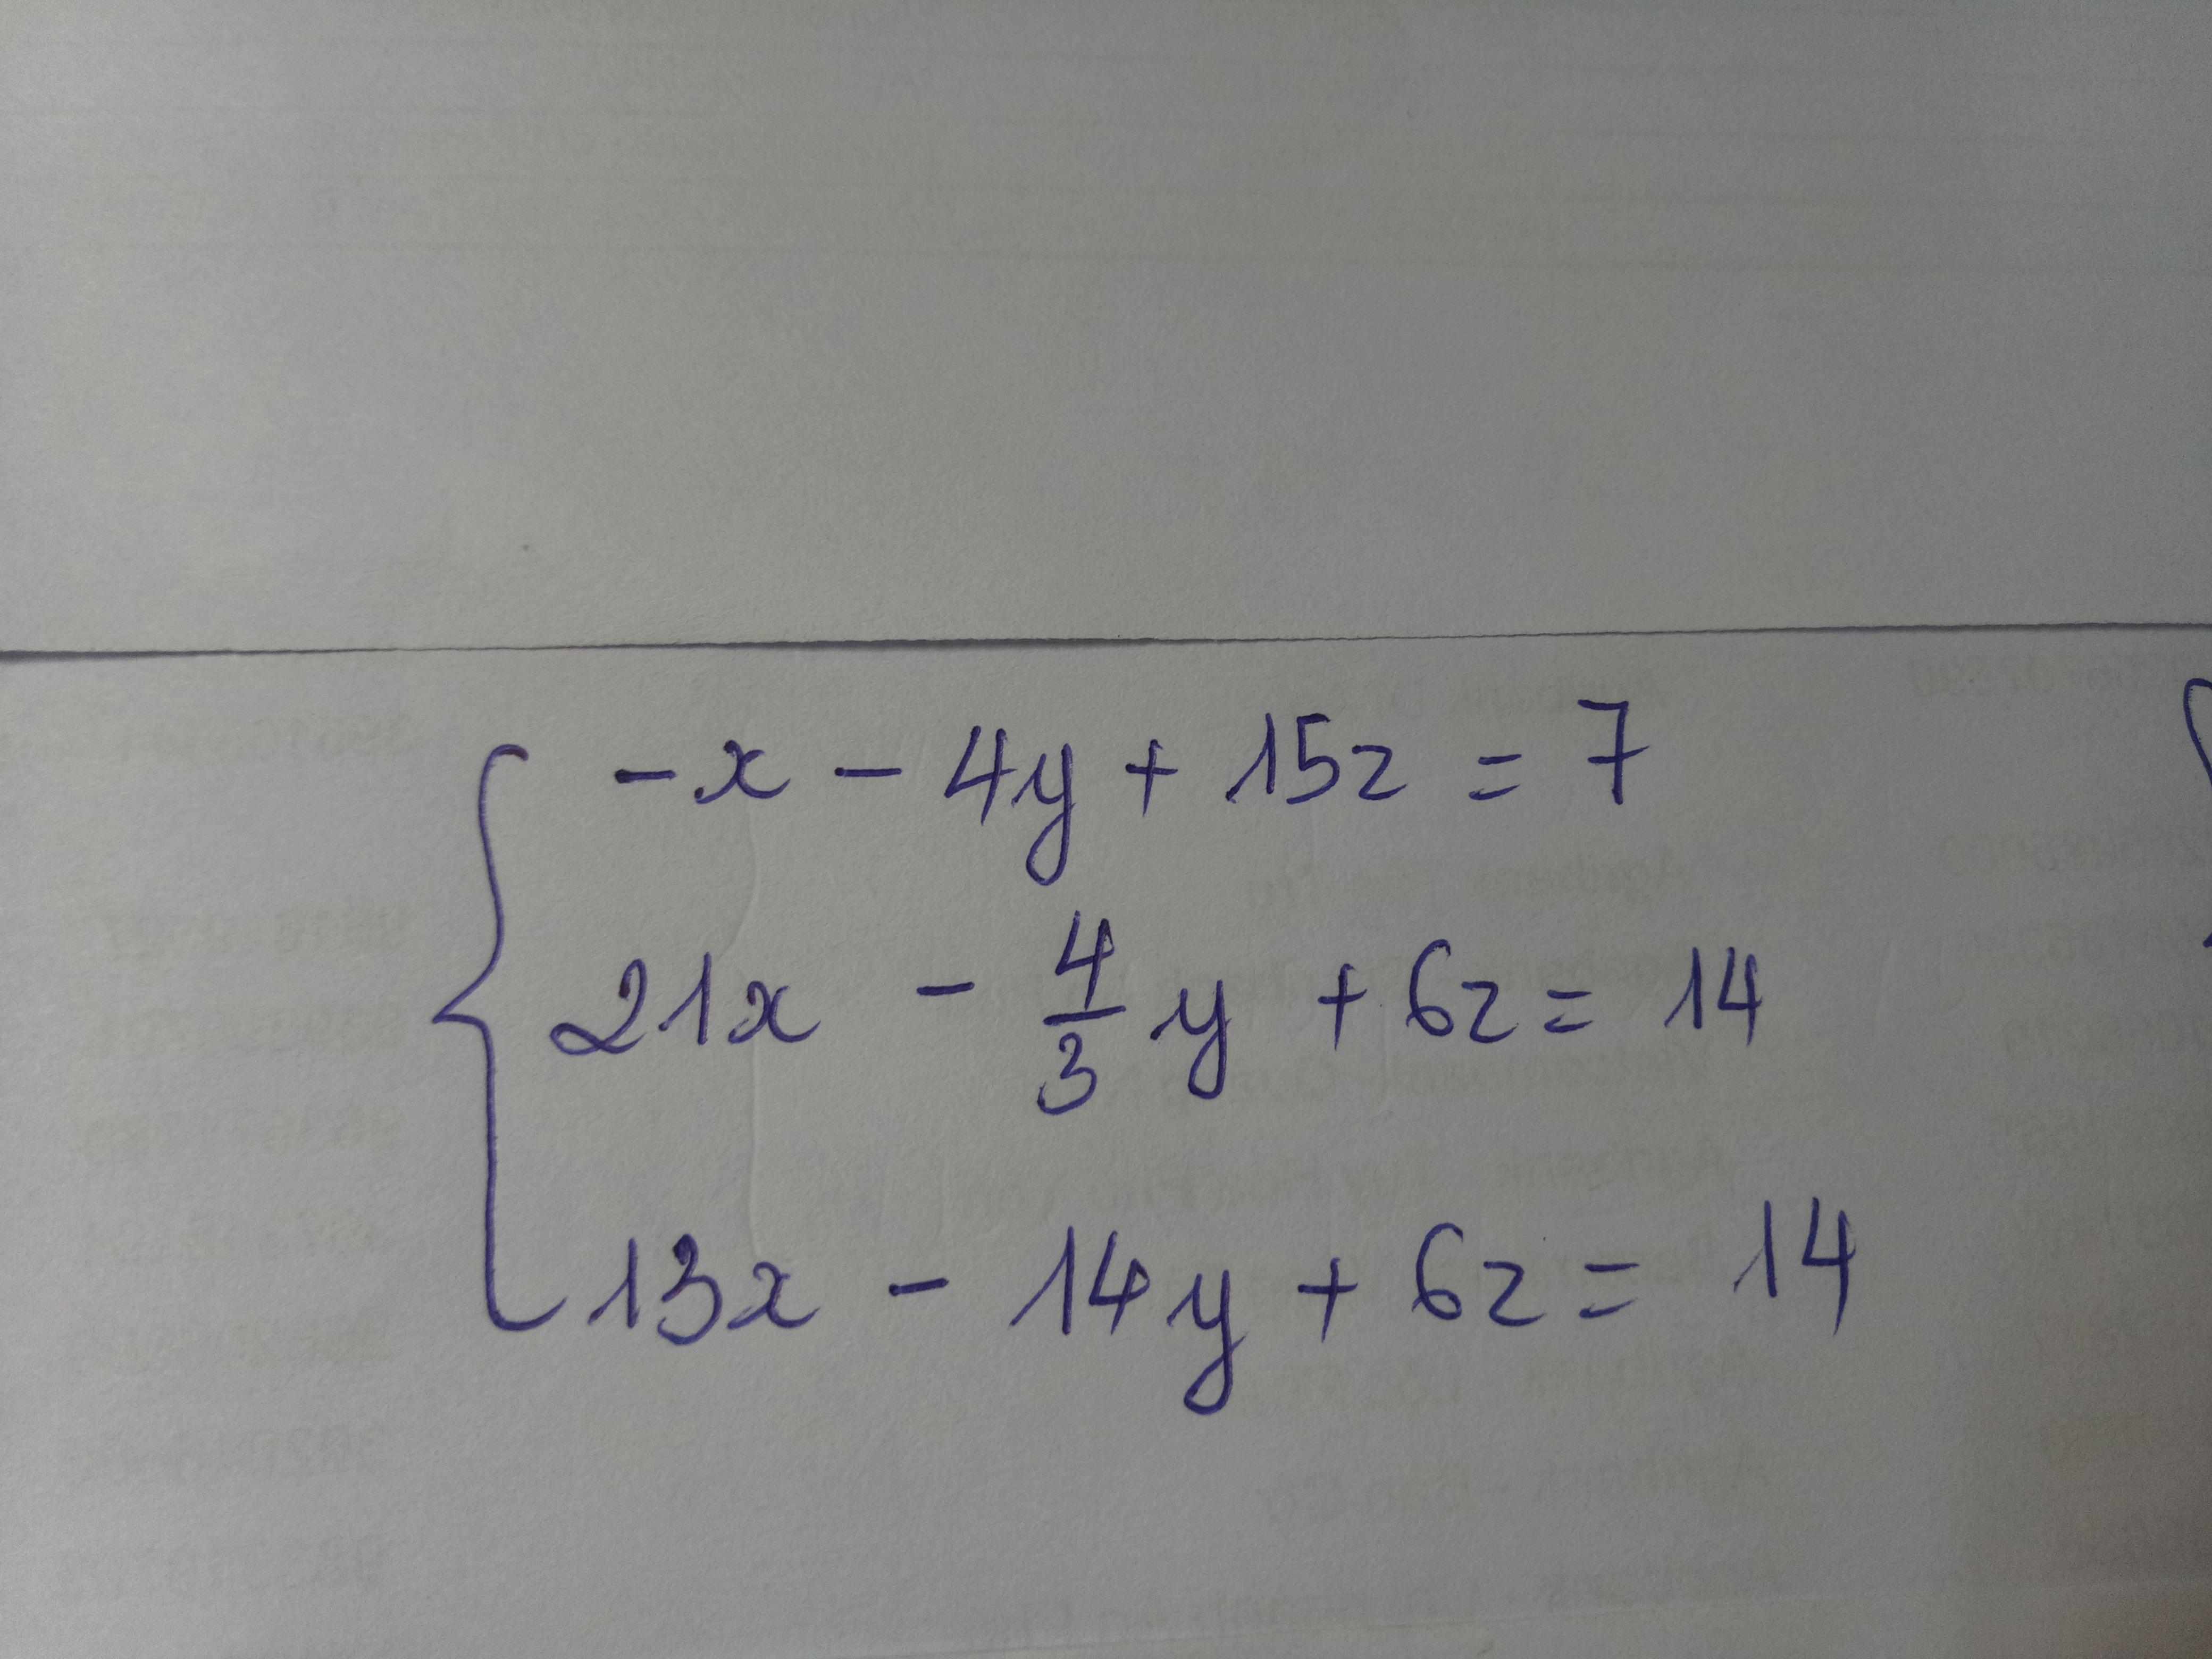 -x - 4y + 15z = 7
21x - 4/3 y + 6z = 14
13x - 14y + 6z = 14